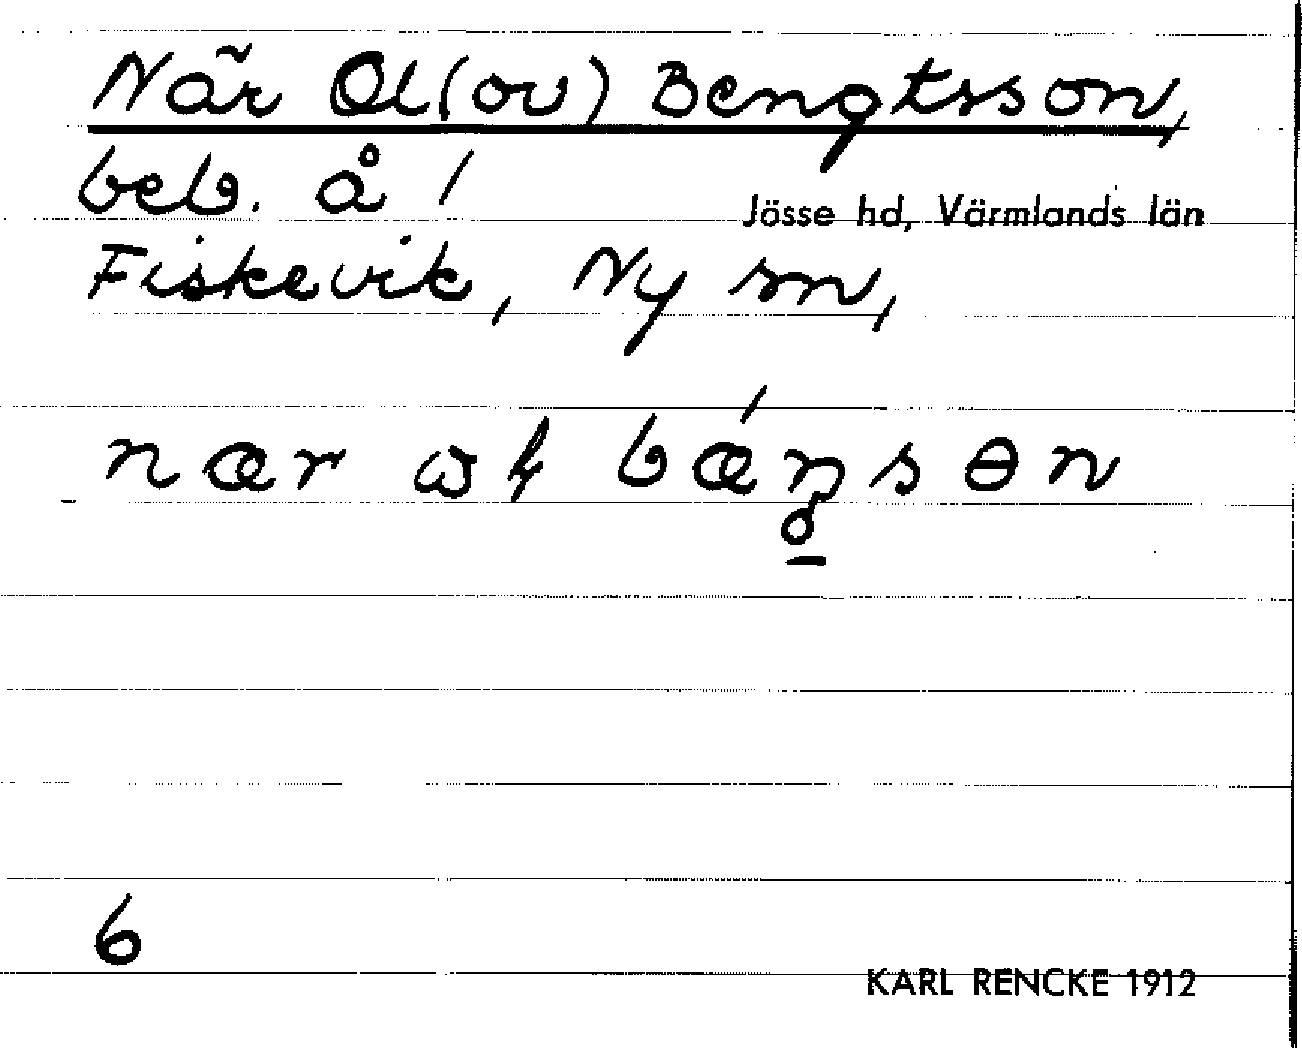 När Ol(ov) Bengtsson,
beb. å /
Jösse hd, Värmlands län
Fiskevik, Ny sn,
nær
6
KARL RENCKE 1912